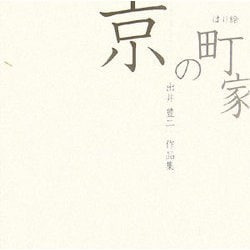 はり絵
京の町家
出井 豊二　作品集